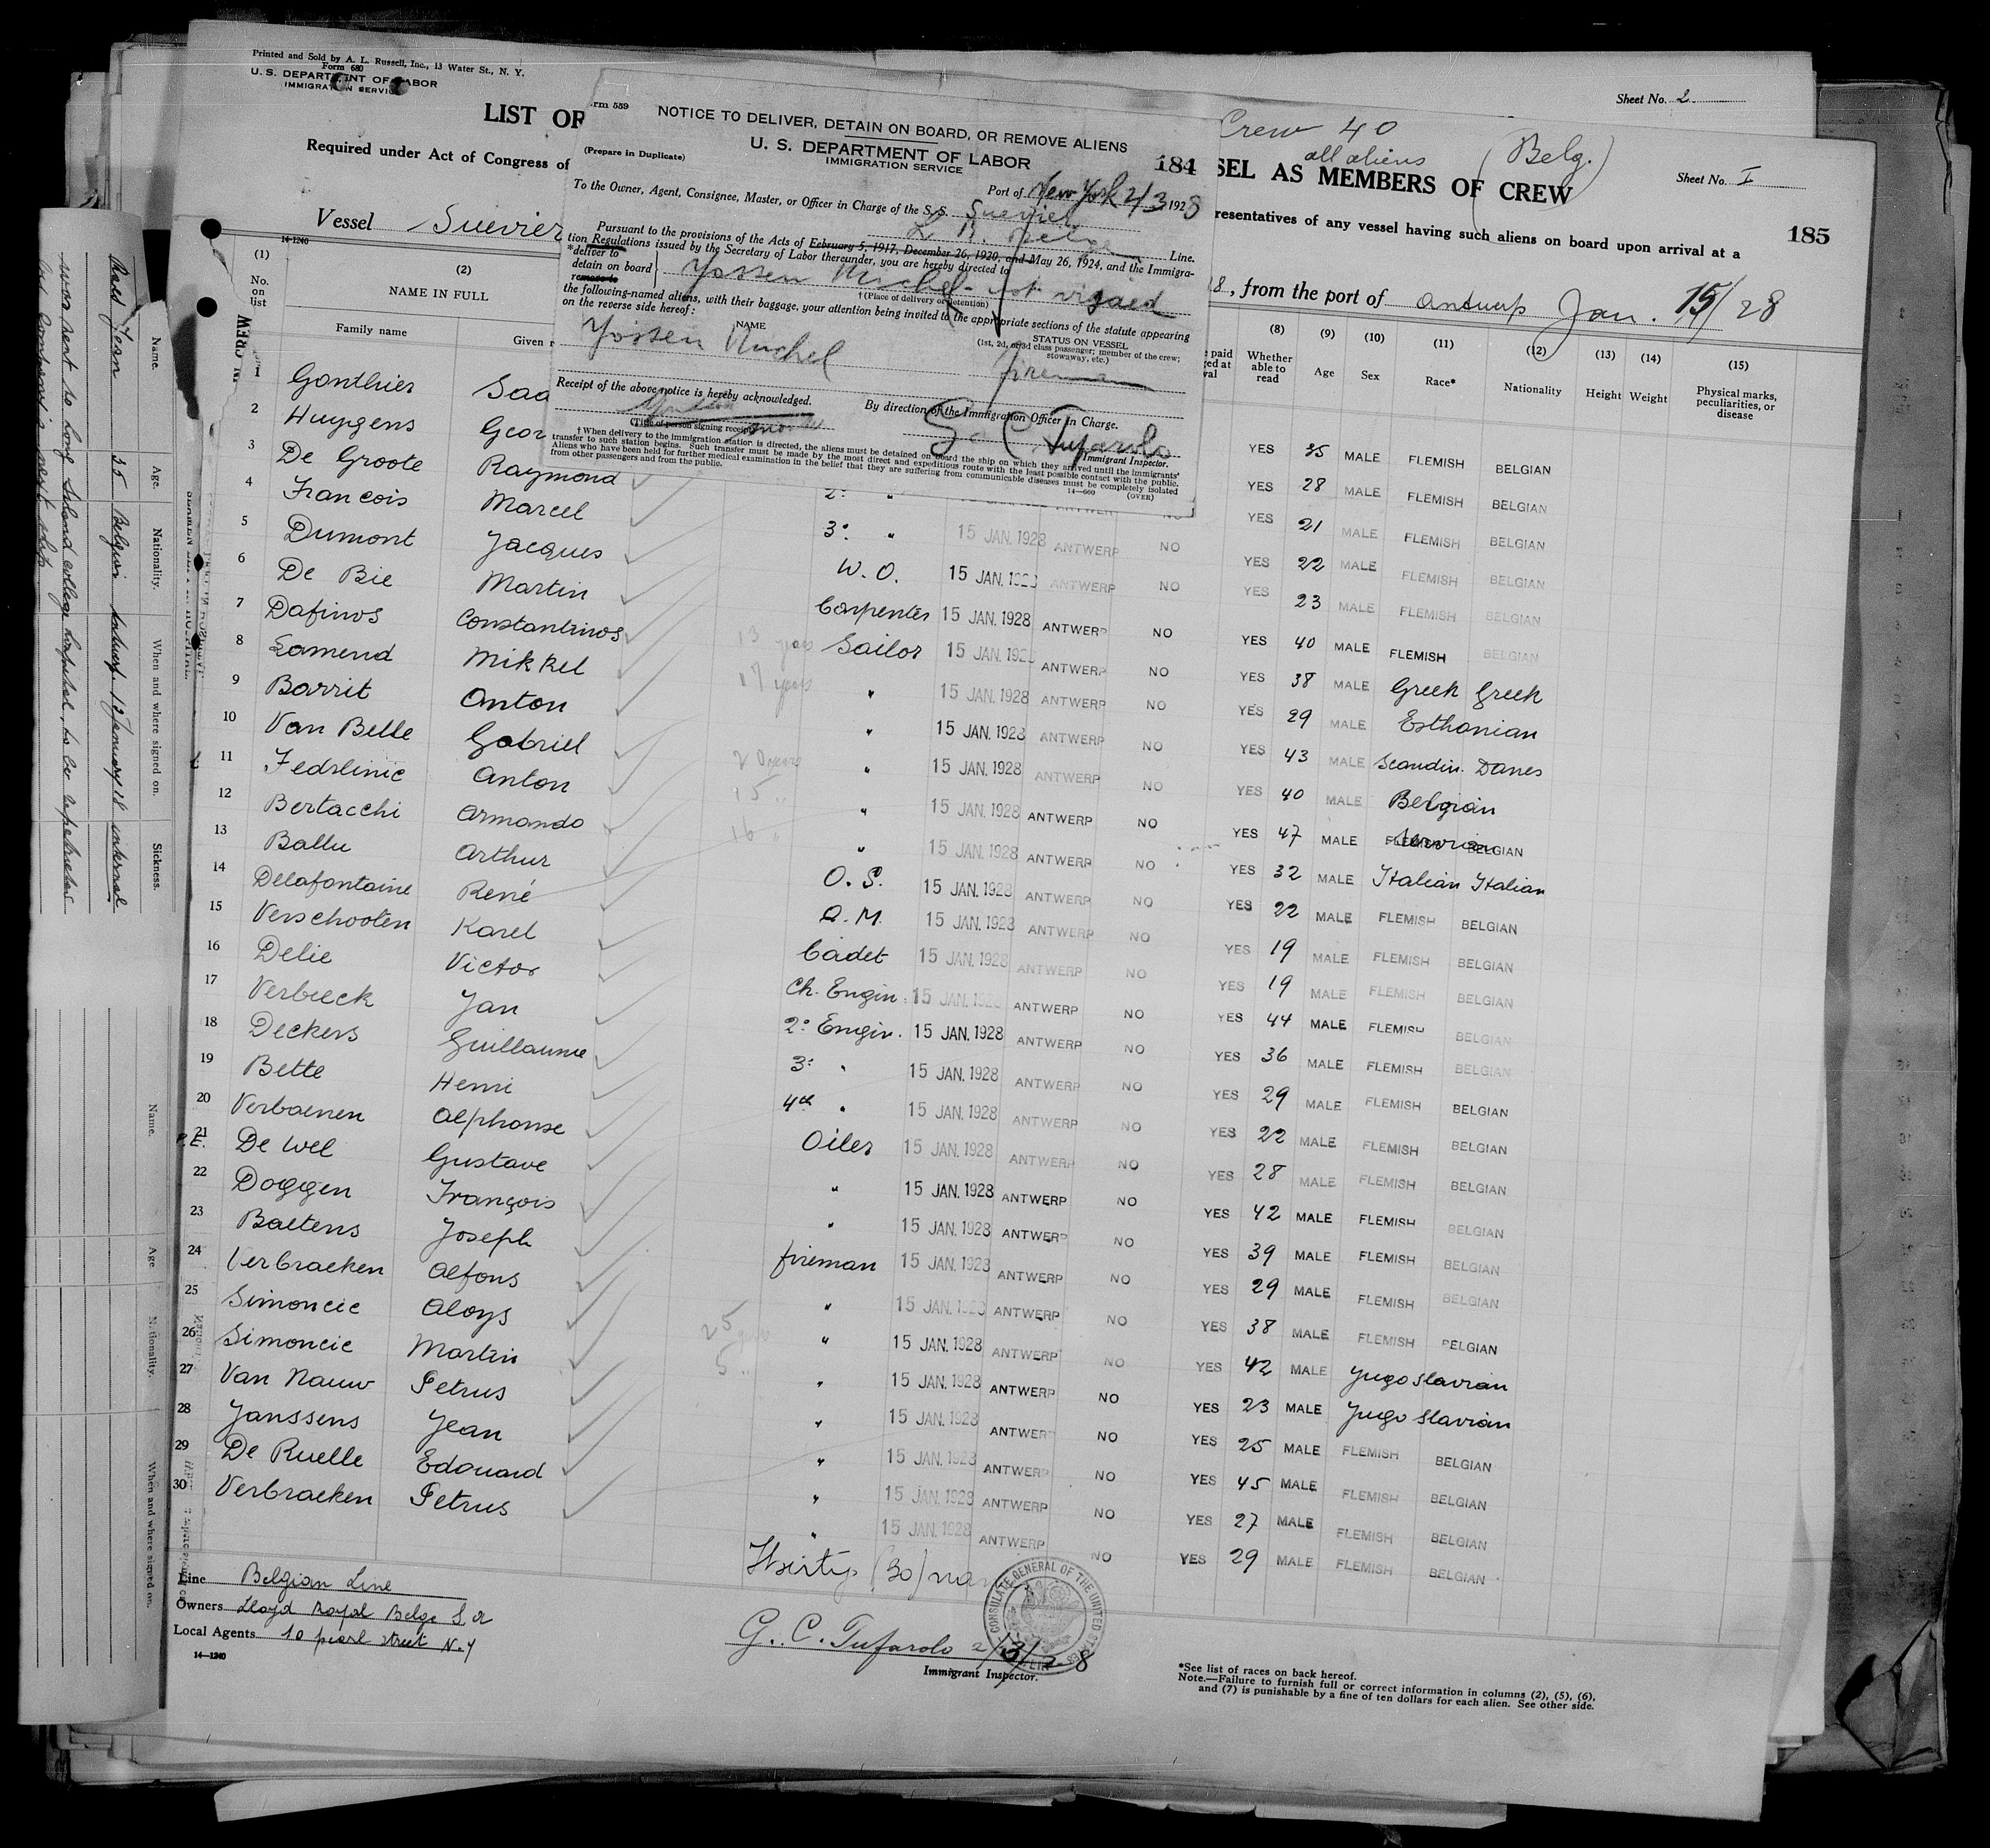 Printed and Sold by A. L. Russell, Inc., 13 Water St., N. Y.
Form 680
U. S. DEPARTMENT OF LABOR
IMMIGRATION SERVICE
Sheet No. 2
LIST OF
Required under Act of Congress of
Vessel Suevier
Crew 40
all aliens (Belg.)
SEL AS MEMBERS OF CREW
Sheet No. I
resentatives of any vessel having such aliens on board upon arrival at a
185
18, from the port of Antwerp Jan. 15/28
rm 559
NOTICE TO DELIVER, DETAIN ON BOARD, OR REMOVE ALIENS
(Prepare in Duplicate)
U. S. DEPARTMENT OF LABOR
IMMIGRATION SERVICE
184
Port of New York 2/3 1928
To the Owner, Agent, Consignee, Master, or Officer in Charge of the S. S. Suevier
L. R. Belge Line.
Pursuant to the provisions of the Acts of February 5, 1917, December 26, 1920, and May 26, 1924, and the Immigra-
tion Regulations issued by the Secretary of Labor thereunder, you are hereby directed to
*deliver to
detain on board
remove to
Yossen Michel - not visaed
†(Place of delivery or detention)
the following-named aliens, with their baggage, your attention being invited to the appropriate sections of the statute appearing
on the reverse side hereof:
NAME
STATUS ON VESSEL
(1st, 2d, or 3d class passenger; member of the crew;
stowaway, etc.)
Yossen Michel fireman
Receipt of the above notice is hereby acknowledged.
By direction of the Immigration Officer in Charge.
(Title of person signing receipt)
G. C. Tufarolo
Immigrant Inspector.
† When delivery to the immigration station is directed, the aliens must be detained on board the ship on which they arrived until the immigrants'
transfer to such station begins. Such transfer must be made by the most direct and expeditious route with the least possible contact with the public.
Aliens who have been held for further medical examination in the belief that they are suffering from communicable diseases must be completely isolated
from other passengers and from the public.
14—660 (OVER)
14-1240
(1) No. on list
(2) NAME IN FULL
Family name
Given
(8) Whether able to read
(9) Age
(10) Sex
(11) Race*
(12) Nationality
(13) Height
(14) Weight
(15) Physical marks, peculiarities, or disease
1 Gonthier YES 35 MALE FLEMISH BELGIAN
2 Huygens Geor YES 28 MALE FLEMISH BELGIAN
3 De Groote Raymond 2° " ANTWERP NO YES 21 MALE FLEMISH BELGIAN
4 Francois Marcel 3° " 15 JAN. 1928 ANTWERP NO YES 22 MALE FLEMISH BELGIAN
5 Dumont Jacques W. O. 15 JAN. 1928 ANTWERP NO YES 23 MALE FLEMISH BELGIAN
6 De Bie Martin Carpenter 15 JAN. 1928 ANTWERP NO YES 40 MALE FLEMISH BELGIAN
7 Dafinos Constantinos 13 years Sailor 15 JAN. 1928 ANTWERP NO YES 38 MALE Greek Greek
8 Lamend Mikkel 17 years " 15 JAN. 1928 ANTWERP NO YES 29 MALE Esthonian
9 Barrit Anton " 15 JAN. 1928 ANTWERP NO YES 43 MALE Scandin. Danes
10 Van Belle Gabriel " 15 JAN. 1928 ANTWERP NO YES 40 MALE Belgian
11 Fedrlinic Anton 20 years " 15 JAN. 1928 ANTWERP NO YES 47 MALE FLEMISH BELGIAN
12 Bertacchi Armando 15 " " 15 JAN. 1928 ANTWERP NO YES 32 MALE Italian Italian
13 Ballu Arthur 16 " O. S. 15 JAN. 1928 ANTWERP NO YES 22 MALE FLEMISH BELGIAN
14 Delafontaine René Q. M. 15 JAN. 1928 ANTWERP NO YES 19 MALE FLEMISH BELGIAN
15 Verschooten Karel Cadet 15 JAN. 1928 ANTWERP NO YES 19 MALE FLEMISH BELGIAN
16 Delie Victor Ch. Engin. 15 JAN. 1928 ANTWERP NO YES 44 MALE FLEMISH BELGIAN
17 Verbeeck Jan 2° Engin. 15 JAN. 1928 ANTWERP NO YES 36 MALE FLEMISH BELGIAN
18 Deckers Guillaume 3° " 15 JAN. 1928 ANTWERP NO YES 29 MALE FLEMISH BELGIAN
19 Bette Henri 4th " 15 JAN. 1928 ANTWERP NO YES 22 MALE FLEMISH BELGIAN
20 Verbaenen Alphonse Oiler 15 JAN. 1928 ANTWERP NO YES 28 MALE FLEMISH BELGIAN
21 De Wel Gustave " 15 JAN. 1928 ANTWERP NO YES 42 MALE FLEMISH BELGIAN
22 Doggen François " 15 JAN. 1928 ANTWERP NO YES 39 MALE FLEMISH BELGIAN
23 Baetens Joseph fireman 15 JAN. 1928 ANTWERP NO YES 29 MALE FLEMISH BELGIAN
24 Verbraeken Alfons " 15 JAN. 1928 ANTWERP NO YES 38 MALE FLEMISH BELGIAN
25 Simoncic Aloys 25 years " 15 JAN. 1928 ANTWERP NO YES 42 MALE Yugo slavian
26 Simoncic Martin 5 " " 15 JAN. 1928 ANTWERP NO YES 23 MALE Yugo slavian
27 Van Nauw Petrus " 15 JAN. 1928 ANTWERP NO YES 25 MALE FLEMISH BELGIAN
28 Janssens Jean " 15 JAN. 1928 ANTWERP NO YES 45 MALE FLEMISH BELGIAN
29 De Ruelle Edouard " 15 JAN. 1928 ANTWERP NO YES 27 MALE FLEMISH BELGIAN
30 Verbraeken Petrus " 15 JAN. 1928 ANTWERP NO YES 29 MALE FLEMISH BELGIAN
Thirty (30) na
CONSULATE GENERAL OF THE UNITED STATES
Line Belgian Line
Owners Lloyd Royal Belge S. A
Local Agents 10 pearl street N.Y
14—1240
G. C. Tufarolo 2/3/28
Immigrant Inspector.
*See list of races on back hereof.
Note.—Failure to furnish full or correct information in columns (2), (5), (6),
and (7) is punishable by a fine of ten dollars for each alien. See other side.
Name. Age. Nationality. When and where signed on. Sickness.
Raes Jean 35 Belgian Antwerp 13 January 18 internal
was sent to Long Island college hospital, to be repatriated
Name. Age Nationality. When and where signed on.